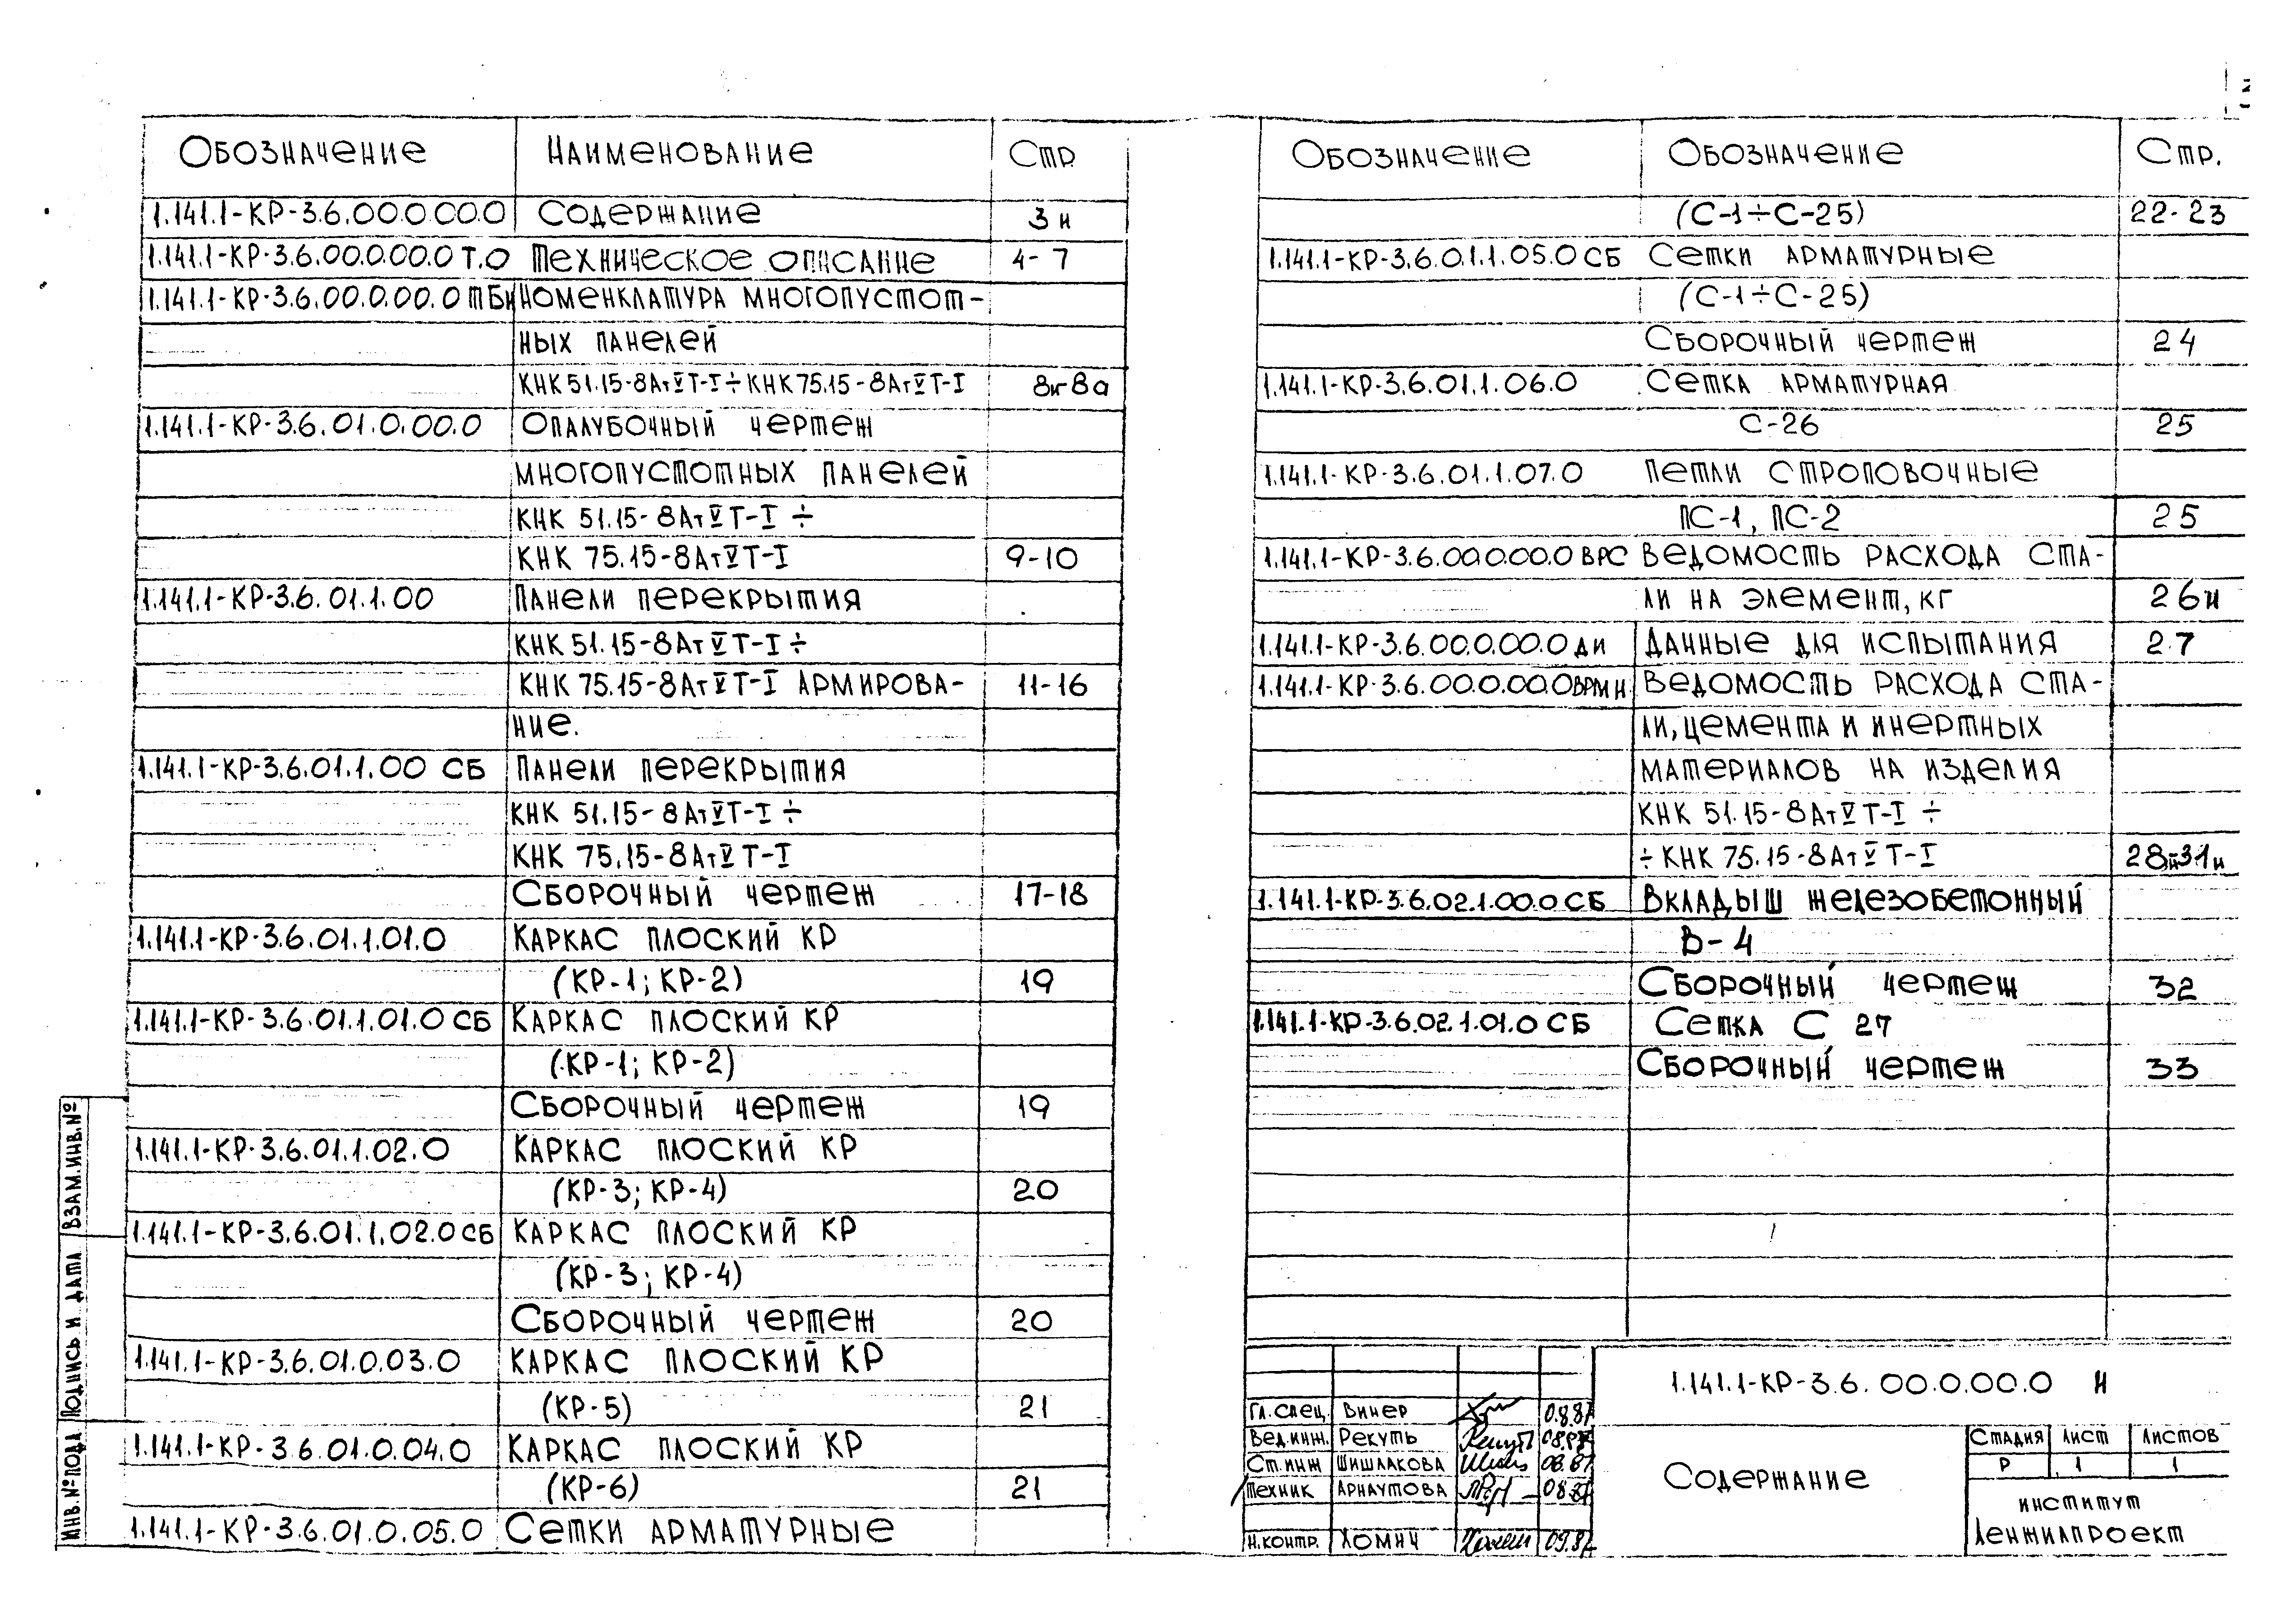 Обозначение Наименование Стр.
1.141.1-КР-3.6.00.0.00.0 Содержание 3и
1.141.1-КР-3.6.00.0.00.0 Т.О Техническое описание 4-7
1.141.1-КР-3.6.00.0.00.0 ТБИ Номенклатура многопустот-
ных панелей
КНК 51.15-8АтVТ-I÷КНК 75.15-8АтVТ-I 8и-8а
1.141.1-КР-3.6.01.0.00.0 Опалубочный чертеж
многопустотных панелей
КНК 51.15-8АтVТ-I ÷
КНК 75.15-8АтVТ-I 9-10
1.141.1-КР-3.6.01.1.00 Панели перекрытия
КНК 51.15-8АтVТ-I ÷
КНК 75.15-8АтVТ-I Армирова- 11-16
ние.
1.141.1-КР-3.6.01.1.00 СБ Панели перекрытия
КНК 51.15-8АтVТ-I ÷
КНК 75.15-8АтVТ-I
Сборочный чертеж 17-18
1.141.1-КР-3.6.01.1.01.0 Каркас плоский КР
(КР-1; КР-2) 19
1.141.1-КР-3.6.01.1.01.0 СБ Каркас плоский КР
(КР-1; КР-2)
Сборочный чертеж 19
1.141.1-КР-3.6.01.1.02.0 Каркас плоский КР
(КР-3; КР-4) 20
1.141.1-КР-3.6.01.1.02.0 СБ Каркас плоский КР
(КР-3; КР-4)
Сборочный чертеж 20
1.141.1-КР-3.6.01.0.03.0 Каркас плоский КР
(КР-5) 21
1.141.1-КР-3.6.01.0.04.0 Каркас плоский КР
(КР-6) 21
1.141.1-КР-3.6.01.0.05.0 Сетки арматурные
Обозначение Обозначение Стр.
(С-1÷С-25) 22-23
1.141.1-КР-3.6.01.1.05.0 СБ Сетки арматурные
(С-1÷С-25)
Сборочный чертеж 24
1.141.1-КР-3.6.01.1.06.0 Сетка арматурная
С-26 25
1.141.1-КР-3.6.01.1.07.0 Петли строповочные
ПС-1, ПС-2 25
1.141.1-КР-3.6.00.0.00.0 ВРС Ведомость расхода ста-
ли на элемент, кг 26и
1.141.1-КР-3.6.00.0.00.0 ДИ Данные для испытания 27
1.141.1-КР-3.6.00.0.00.0 ВРМ И Ведомость расхода ста-
ли, цемента и инертных
материалов на изделия
КНК 51.15-8АтVТ-I ÷
÷ КНК 75.15-8АтVТ-I 28и-31и
1.141.1-КР-3.6.02.1.00.0 СБ Вкладыш железобетонный
В-4
Сборочный чертеж 32
1.141.1-КР-3.6.02.1.01.0 СБ Сетка С 27
Сборочный чертеж 33
1.141.1-КР-3.6.00.0.00.0 И
Гл. спец. Винер 08.87
Вед.инж. Рекуть 08.87
Ст.инж Шишлакова 08.87
Техник Арнаутова 08.87
Н.контр. Хомич 09.87
Содержание
Стадия Лист Листов
Р 1 1
институт
Ленжилпроект
Инв. № подл Подпись и дата Взам.инв.№